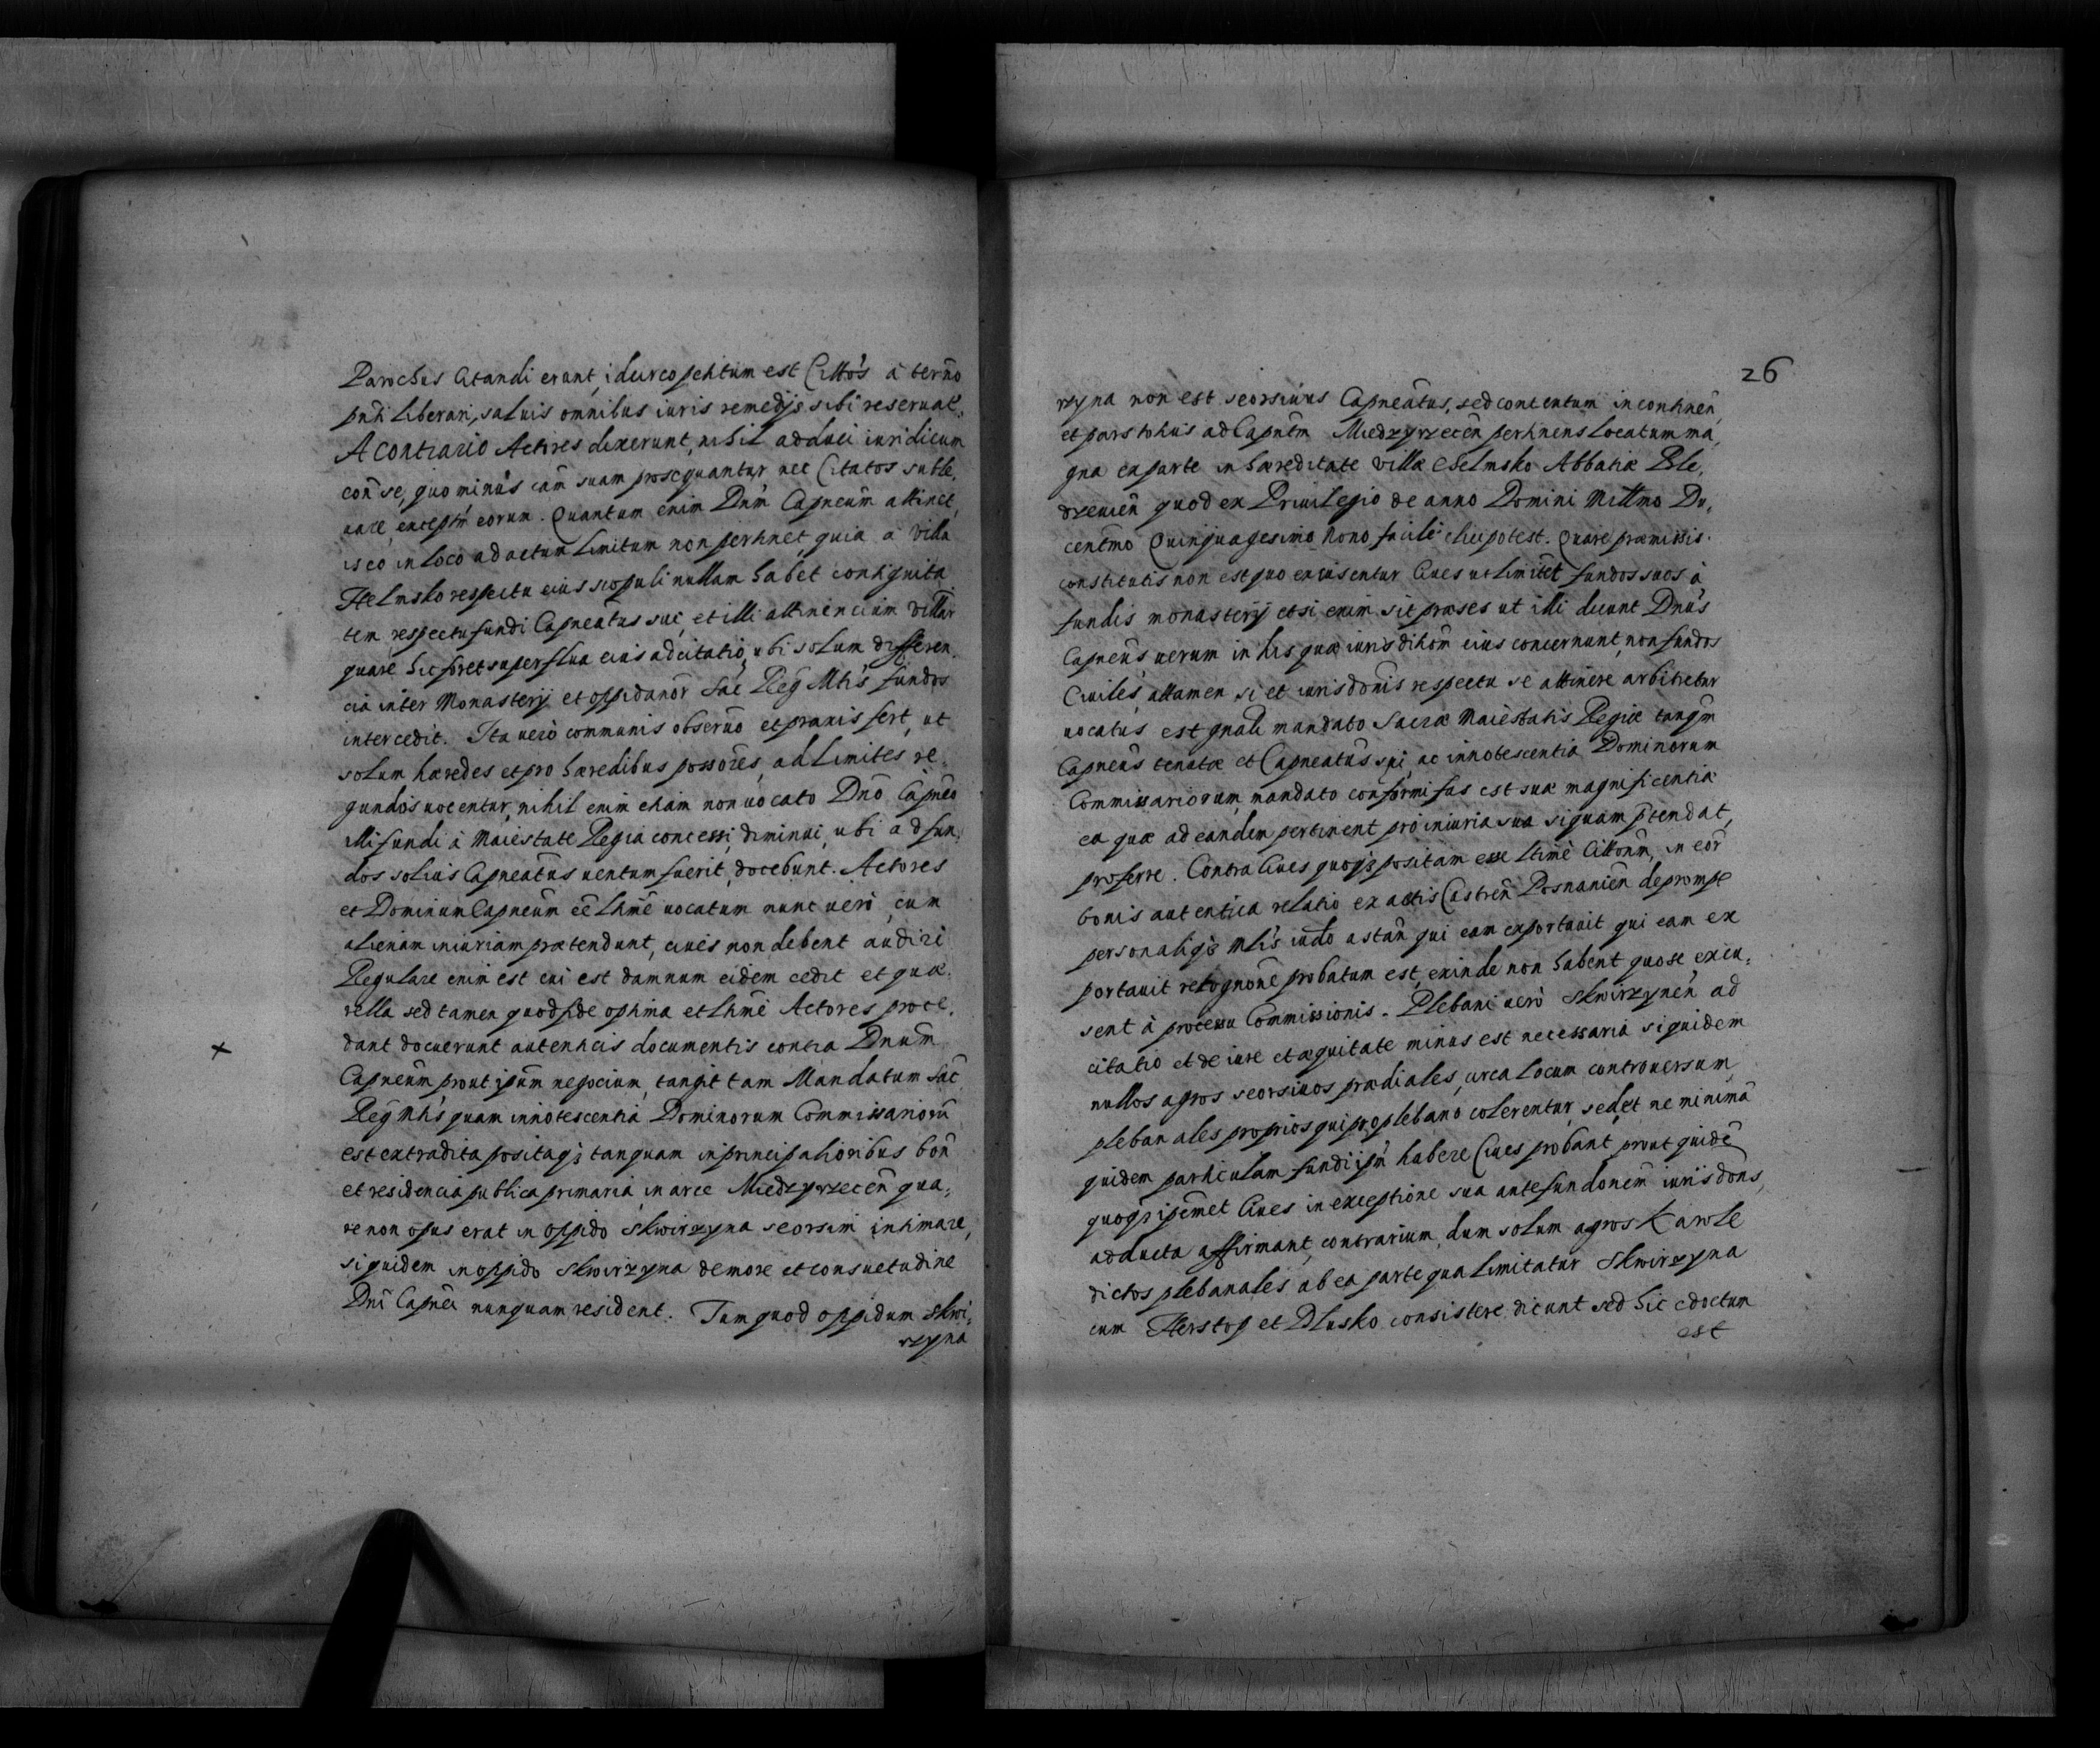 Parochus Citandi erant, idcirco petitum est Cittõs à termõ
pñti liberari, saluis omnibus iuris remedijs sibi reseruat.
A contrario Actores dixerunt, nihil adduci iuridicum
coñ se, quo minùs cãm suam prosequantur nec Citatos suble,
uare, exceptm̃ eorum. Quantum enim Dnm̃ Capneum̃ attinet,
is eo in loco ad actum limitum non pertinet, quia à villa
Helmsko respectu eius scopuli nullam habet contiguita
tem respectu fundi Capneatus sui, et illi attinencium villar̃
quare hic foret superflua eius adcitatio, ubi solum differen.
cia inter Monasterij et oppidanor̃ Sac Reg Mtis fundos
intercedit. Ita uerò communis obseruõ et praxis fert, ut
solum hæredes et pro hæredibus possorẽs, ad limites re.
gundos uocentur, nihil enim etiam non uocato Dnõ Capneõ
illi fundi à Maiestate Regia concessi, diminui, ubi ad fun,
dos solius Capneatus uentum fuerit, docebunt. Actores
et Dominum Capneum̃ eẽ ltimẽ uocatum nunc uerò, cum
alienam iniuriam prætendunt, ciues non debent audiri
Regulare enim est cui est damnum eidem cedit et quæ.
rella sed tamen quod fide optima et ltimẽ Actores proce.
dant docuerunt autenticis documentis contra Dnum̃
Capneum̃ prout ipsum̃ negocium, tangit tam Mandatum Sac̃
Reg̃ Mtis quam innotescentia, Dominorum Commissariorũ
est extradita positaq; tanquam in principalioribus boñ
et residencia publica primaria, in arce Miedzyrzeceñ qua,
re non opus erat in oppido Skwirzyna seorsim intimare,
siquidem in oppido Skwirzyna de more et consuetudine
Dnĩ Capneĩ nunquam resident. Tum quod oppidum Skwi,
rzyna
26
rzyna non est seorsiuus Capneatus, sed contentum in contineñ,
et pars totius ad Capnetm̃ Miedzyrzeceñ pertinens locatum ma,
gna ea parte in hæreditate villæ Chelmsko Abbatiæ Ble,
dzeuieñ quod ex Priuilegio de anno Domini Millmo Du,
centmõ Quinquagesimo Nono, facilè elici potest. Quare præmissis.
constitutis non est quo excusentur Ciues ut limitet fundos suos à
fundis monasterij etsi enim sit præses ut illi dicunt Dnus
Capneus uerum in his quæ iurisditiom̃ eius concernunt, non fundos
Ciuiles, attamen si et iurisdonis respectu se attinere arbitretur
uocatus est gnali mandato Sacræ Maiestatis Regiæ tanqm̃
Capneus tenutæ et Capneatus sui, ac innotescentia Dominorum
Commissariorum, mandato conformi fas est suæ magnificentiæ
ea quæ ad eandem pertinent pro iniuria sua siquam ptendat,
proferre. Contra Ciues quoq; positam esse ltimè Cittonm̃, in eor̃
bonis autentica relatio ex actis Castreñ Posnanieñ deprompt
personaliq; Mlis iudõ astañ qui eam exportauit qui eam ex
portauit recognonẽ probatum est, exinde non habent quo se excu,
sent à processu Commissionis. Plebani uerò Skwirzyneñ ad
citatio et de iure et æquitate minus est necessaria siquidem
nullos agros seorsiuos prædiales, circa locum controuersum,
plebanales proprios qui pro plebano colerentur, sed et ne minimã
quidem particulam fundi ipm̃ habere Ciues probant, prout quidẽ
quoq; ipsemet Ciues in exceptione sua ante fundonem̃ iurisdõns,
adducta affirmant, contrarium, dum solum agros Karole
dictos plebanales ab ea parte qua limitatur Skwirzyna
cum Herstop et Dlusko consistere dicunt sed hic edoctum
est